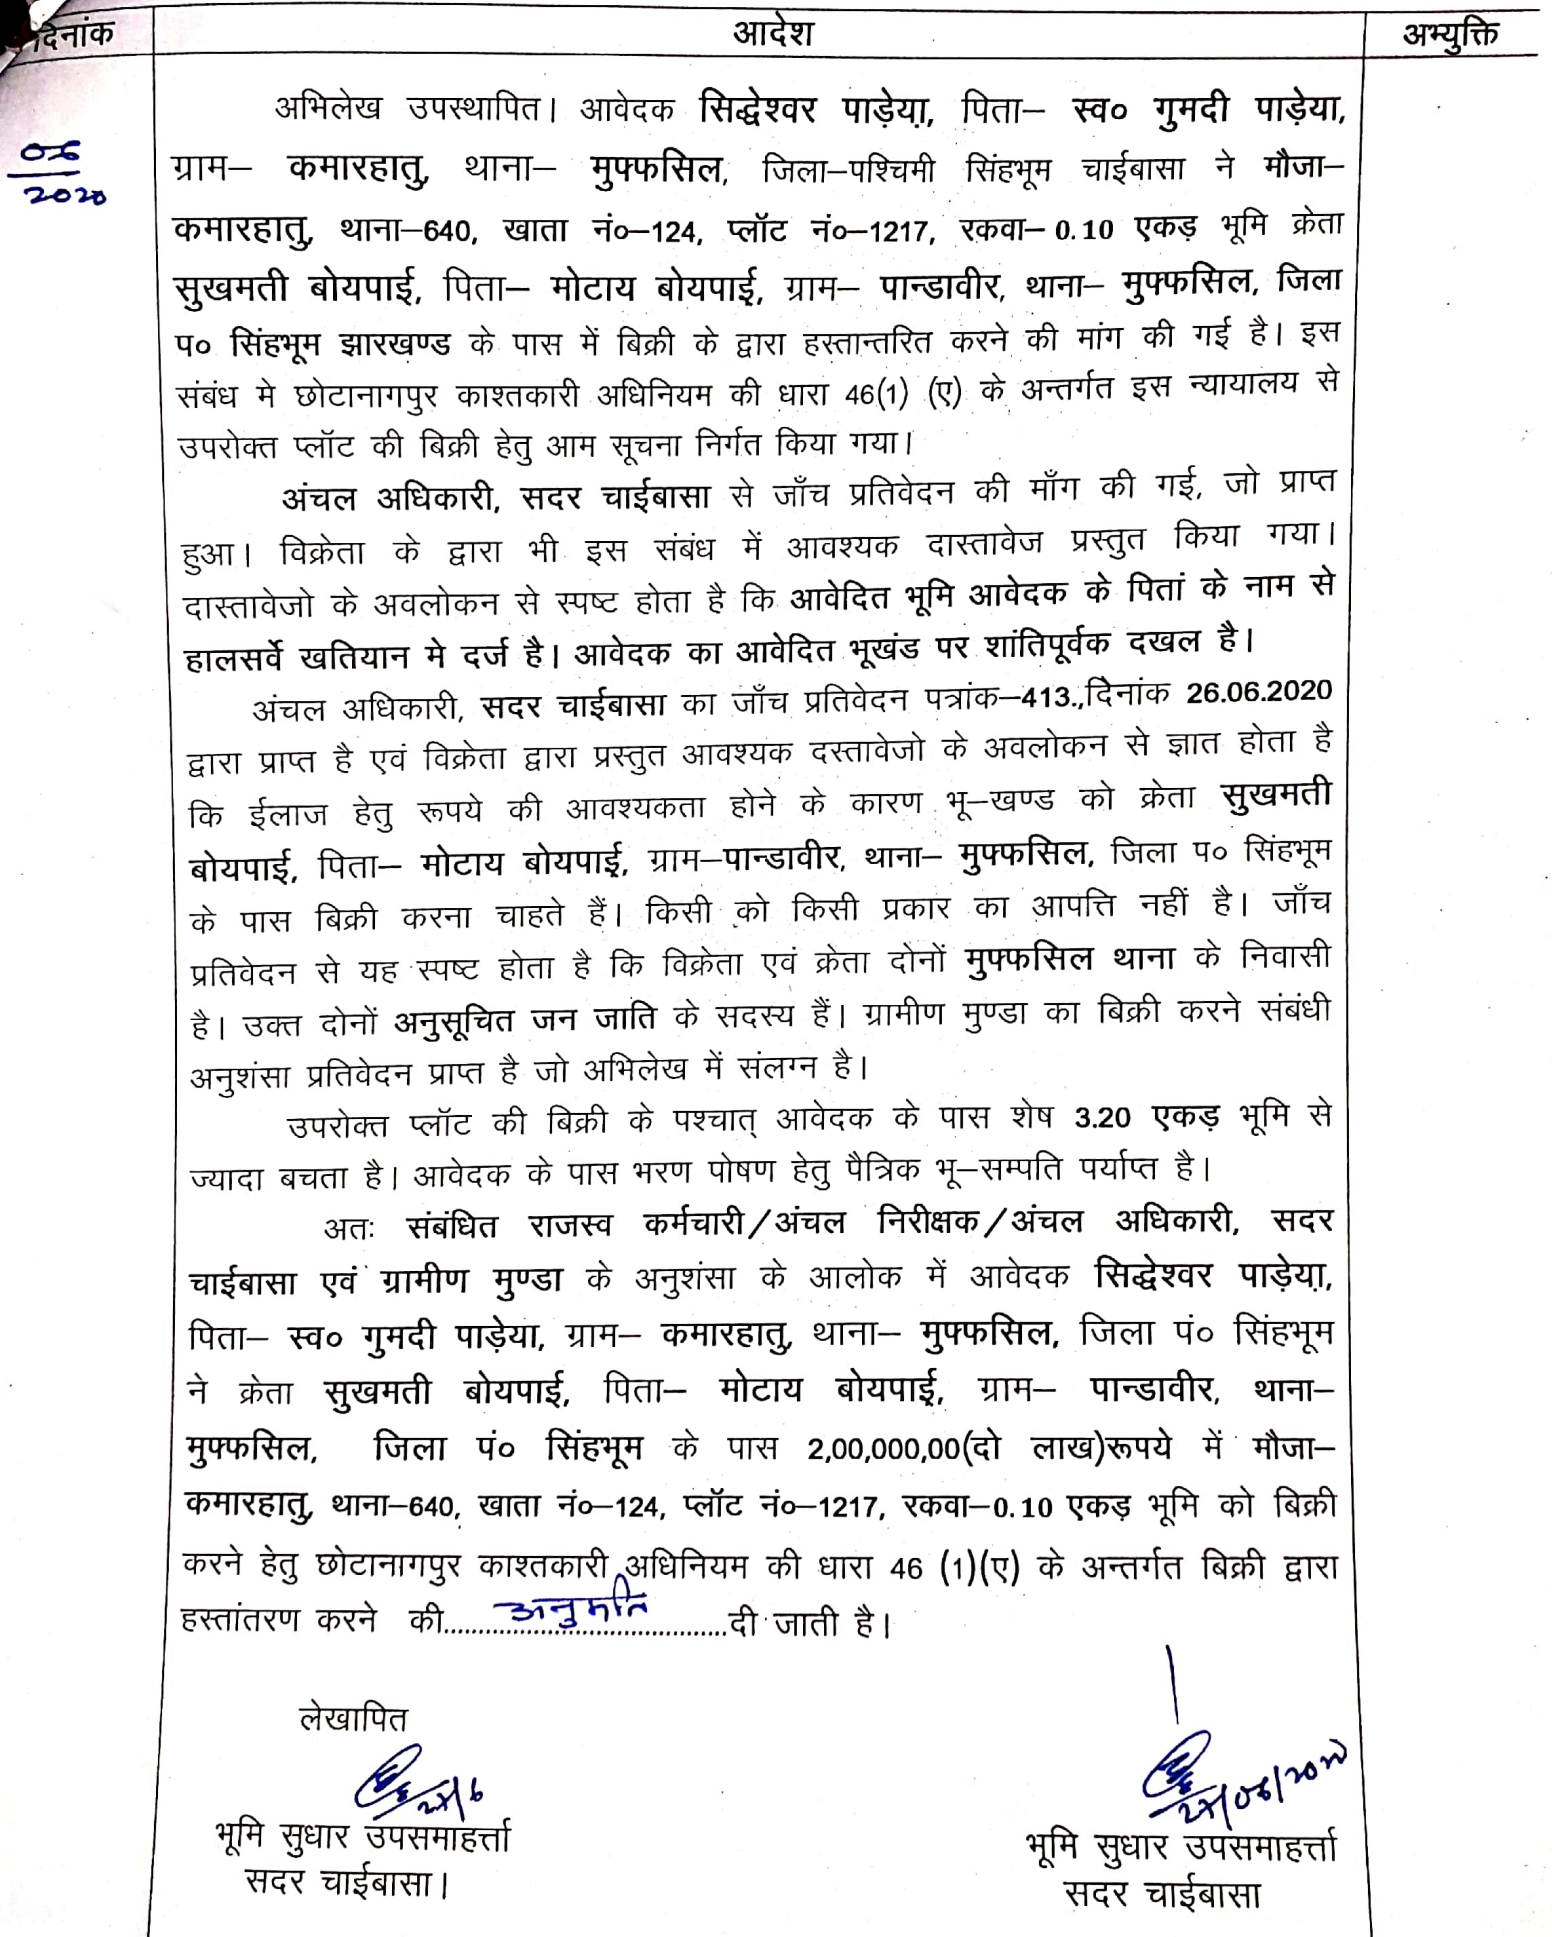 दिनांक आदेश अभ्युक्ति
06
2020
अभिलेख उपस्थापित। आवेदक सिद्धेश्वर पाड़ेया, पिता– स्व० गुमदी पाड़ेया,
ग्राम– कमारहातु, थाना– मुफ्फसिल, जिला–पश्चिमी सिंहभूम चाईबासा ने मौजा–
कमारहातु, थाना–640, खाता नं०–124, प्लॉट नं०–1217, रकवा– 0.10 एकड़ भूमि क्रेता
सुखमती बोयपाई, पिता– मोटाय बोयपाई, ग्राम– पान्डावीर, थाना– मुफ्फसिल, जिला
प० सिंहभूम झारखण्ड के पास में बिक्री के द्वारा हस्तान्तरित करने की मांग की गई है। इस
संबंध मे छोटानागपुर काश्तकारी अधिनियम की धारा 46(1) (ए) के अन्तर्गत इस न्यायालय से
उपरोक्त प्लॉट की बिक्री हेतु आम सूचना निर्गत किया गया।
अंचल अधिकारी, सदर चाईबासा से जाँच प्रतिवेदन की माँग की गई, जो प्राप्त
हुआ। विक्रेता के द्वारा भी इस संबंध में आवश्यक दास्तावेज प्रस्तुत किया गया।
दास्तावेजो के अवलोकन से स्पष्ट होता है कि आवेदित भूमि आवेदक के पितां के नाम से
हालसर्वे खतियान मे दर्ज है। आवेदक का आवेदित भूखंड पर शांतिपूर्वक दखल है।
अंचल अधिकारी, सदर चाईबासा का जाँच प्रतिवेदन पत्रांक–413.,दिनांक 26.06.2020
द्वारा प्राप्त है एवं विक्रेता द्वारा प्रस्तुत आवश्यक दस्तावेजो के अवलोकन से ज्ञात होता है
कि ईलाज हेतु रूपये की आवश्यकता होने के कारण भू–खण्ड को क्रेता सुखमती
बोयपाई, पिता– मोटाय बोयपाई, ग्राम–पान्डावीर, थाना– मुफ्फसिल, जिला प० सिंहभूम
के पास बिक्री करना चाहते हैं। किसी को किसी प्रकार का आपत्ति नहीं है। जाँच
प्रतिवेदन से यह स्पष्ट होता है कि विक्रेता एवं क्रेता दोनों मुफ्फसिल थाना के निवासी
है। उक्त दोनों अनुसूचित जन जाति के सदस्य हैं। ग्रामीण मुण्डा का बिक्री करने संबंधी
अनुशंसा प्रतिवेदन प्राप्त है जो अभिलेख में संलग्न है।
उपरोक्त प्लॉट की बिक्री के पश्चात् आवेदक के पास शेष 3.20 एकड़ भूमि से
ज्यादा बचता है। आवेदक के पास भरण पोषण हेतु पैत्रिक भू–सम्पति पर्याप्त है।
अतः संबंधित राजस्व कर्मचारी/अंचल निरीक्षक/अंचल अधिकारी, सदर
चाईबासा एवं ग्रामीण मुण्डा के अनुशंसा के आलोक में आवेदक सिद्धेश्वर पाड़ेया,
पिता– स्व० गुमदी पाड़ेया, ग्राम– कमारहातु, थाना– मुफ्फसिल, जिला पं० सिंहभूम
ने क्रेता सुखमती बोयपाई, पिता– मोटाय बोयपाई, ग्राम– पान्डावीर, थाना–
मुफ्फसिल, जिला पं० सिंहभूम के पास 2,00,000,00(दो लाख)रूपये में मौजा–
कमारहातु, थाना–640, खाता नं०–124, प्लॉट नं०–1217, रकवा–0.10 एकड़ भूमि को बिक्री
करने हेतु छोटानागपुर काश्तकारी अधिनियम की धारा 46 (1)(ए) के अन्तर्गत बिक्री द्वारा
हस्तांतरण करने की.....अनुमति.....दी जाती है।
लेखापित
27/6 27/06/2020
भूमि सुधार उपसमाहर्त्ता भूमि सुधार उपसमाहर्त्ता
सदर चाईबासा। सदर चाईबासा